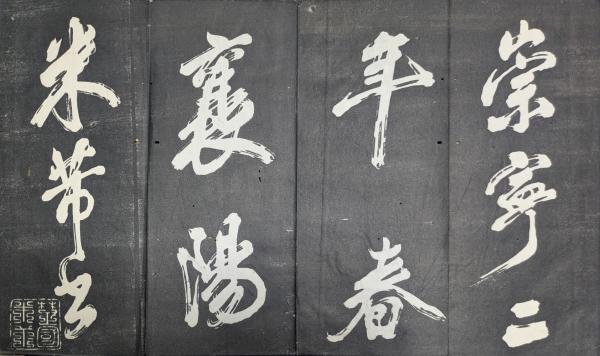 崇寧二
年春
襄陽
米芾書